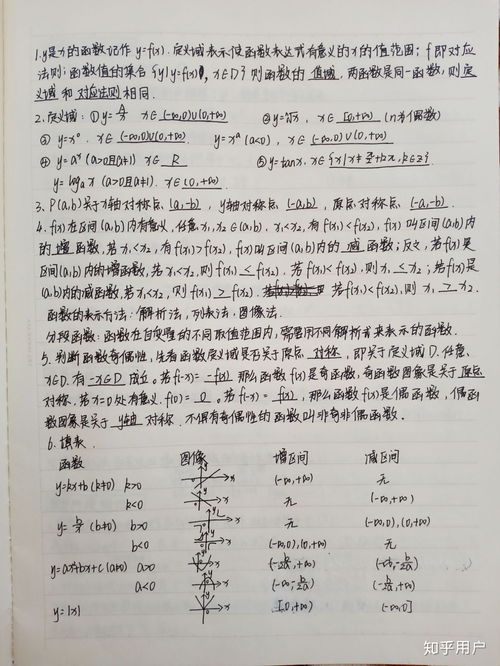 1.y是x的函数记作 y=f(x).定义域表示使函数表达式有意义的x的值范围;f即对应
法则;函数值的集合{y|y=f(x),x∈D}则函数的 值域.两函数是同一函数,则定
义域 和 对应法则 相同.
2.定义域:① x∈(-∞,0)∪(0,+∞) x∈[0,+∞) (n为偶数)
③ y=x⁰. x∈(-∞,0)∪(0,+∞) y=xᵃ(a<0), x∈(-∞,0)∪(0,+∞)
④ y=aˣ(a>0且a≠1) x∈ R ⑤y=tanx, x∈{x|x≠π/2+kπ,k∈Z}
y=logₐx(a>0且a≠1). x∈(0,+∞).
3. P(a,b)关于x轴对称点(a,-b), y轴对称点(-a,b), 原点对称点(-a,-b).
4. f(x)在区间(a,b)内有意义,任意x₁,x₂∈(a,b), x₁<x₂,有f(x₁)<f(x₂), f(x)叫区间(a,b)内
的 增 函数,若x₁<x₂,有f(x₁)>f(x₂), f(x)叫区间(a,b)内的 减 函数;反之,若f(x)是
区间(a,b)内的增函数,若x₁<x₂,则f(x₁)<f(x₂).若f(x₁)<f(x₂),则x₁<x₂;若f(x)是
(a,b)内的减函数,若x₁<x₂,则f(x₁)>f(x₂). 若f(x₁)<f(x₂),则x₁>x₂.
函数的表示方法:解析法,列表法,图像法.
分段函数:函数在自变量的不同取值范围内,需要用不同解析式来表示的函数.
5.判断函数奇偶性,先看函数定义域是否关于原点 对称,即关于定义域D.任意
x∈D.有-x∈D成立。若f(-x)=-f(x)那么函数f(x)是奇函数,奇函数图象是关于原点
对称.若x=0处有意义.f(0)= 0 。若f(-x)=f(x),那么函数f(x)是偶函数,偶函
数图象是关于 y轴 对称.不俱有奇偶性的函数叫非奇非偶函数.
6.填表.
函数 图像 增区间 减区间
y=kx+b(k≠0) k>0 (-∞,+∞) 无
k<0 无 (-∞,+∞)
(b≠0) b>0 无 (-∞,0),(0,+∞)
b<0 (-∞,0),(0,+∞) 无
y=ax²+bx+c(a≠0) a>0 (-b/2a,+∞) (-∞,-b/2a)
a<0 (-∞,-b/2a) (-b/2a,+∞)
y=|x| [0,+∞) (-∞,0]
知乎用户